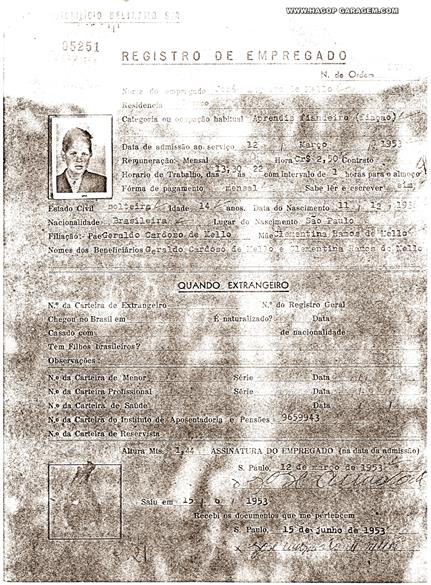 WWW.HAGOP GARAGEM.COM
05251
REGISTRO DE EMPREGADO
N. de Ordem
Nome do empregado José de Mello
Residencia
Categoria ou ocupação habitual Aprendiz fiandeiro (fiação)
Data de admissão ao serviço 12 Março 1953
Remuneração: Mensal Hora Cr$ 2,50 Contrato
Horario de Trabalho, das 13,30 às 22 com intervalo de 1 horas para o almoço
Fórma de pagamento mensal Sabe lêr e escrever sim
Estado Civil solteiro Idade 14 anos. Data do Nascimento 11 / 12
Nacionalidade Brasileira Lugar do Nascimento São Paulo
Filiação: Pae Geraldo Cardozo de Mello Mãe Clementina Ramos de Mello
Nomes dos Beneficiários Geraldo Cardozo de Mello e Clementina Ramos de Mello
QUANDO EXTRANGEIRO
N.º da Carteira de Extrangeiro N.º do Registro Geral
Chegou no Brasil em É naturalizado? Data
Casado com de nacionalidade
Tem Filhos brasileiros?
Observações:
N.º da Carteira de Menor Série Data
N.º da Carteira Profissional Série Data
N.º da Carteira de Saúde Data
N.º da Carteira do Instituto de Aposentadoria e Pensões 9659943
N.º da Carteira de Reservista
Altura Mts. 1,44 ASSINATURA DO EMPREGADO (na data da admissão)
S. Paulo, 12 de março de 1953
Saiu em 15 / 6 / 1953
Recebi os documentos que me pertencem
S. Paulo, 15 de junho de 1953